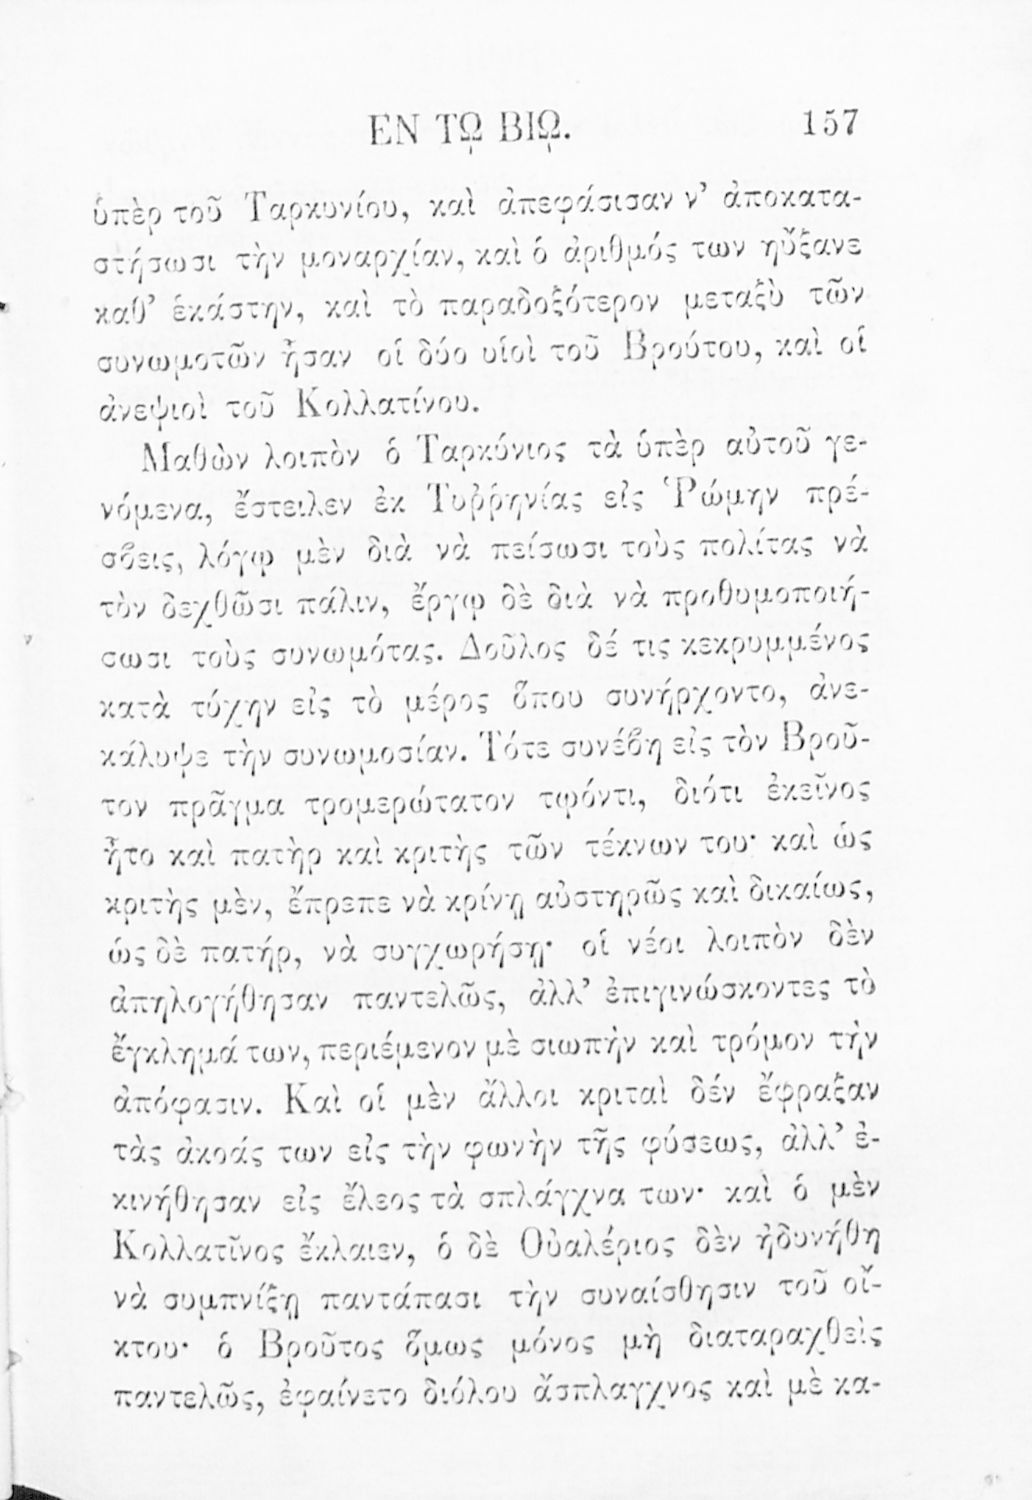 ΕΝ Τῼ ΒΙῼ. 157
ὑπὲρ τοῦ Ταρκυνίου, καὶ ἀπεφάσισαν ν’ ἀποκατα-
στήσωσι τὴν μοναρχίαν, καὶ ὁ ἀριθμός των ηὔξανε
καθ’ ἑκάστην, καὶ τὸ παραδοξότερον μεταξὺ τῶν
συνωμοτῶν ἦσαν οἱ δύο υἱοὶ τοῦ Βρούτου, καὶ οἱ
ἀνεψιοὶ τοῦ Κολλατίνου.
Μαθὼν λοιπὸν ὁ Ταρκύνιος τὰ ὑπὲρ αὐτοῦ γε-
νόμενα, ἔστειλεν ἐκ Τυῤῥηνίας εἰς Ῥώμην πρέ-
σβεις, λόγῳ μὲν διὰ νὰ πείσωσι τοὺς πολίτας νὰ
τὸν δεχθῶσι πάλιν, ἔργῳ δὲ διὰ νὰ προθυμοποιή-
σωσι τοὺς συνωμότας. Δοῦλος δέ τις κεκρυμμένος
κατὰ τύχην εἰς τὸ μέρος ὅπου συνήρχοντο, ἀνε-
κάλυψε τὴν συνωμοσίαν. Τότε συνέβη εἰς τὸν Βροῦ-
τον πρᾶγμα τρομερώτατον τῳόντι, διότι ἐκεῖνος
ἦτο καὶ πατὴρ καὶ κριτὴς τῶν τέκνων του· καὶ ὡς
κριτὴς μὲν, ἔπρεπε νὰ κρίνῃ αὐστηρῶς καὶ δικαίως,
ὡς δὲ πατήρ, νὰ συγχωρήσῃ· οἱ νέοι λοιπὸν δὲν
ἀπηλογήθησαν παντελῶς, ἀλλ’ ἐπιγινώσκοντες τὸ
ἔγκλημά των, περιέμενον μὲ σιωπὴν καὶ τρόμον τὴν
ἀπόφασιν. Καὶ οἱ μὲν ἄλλοι κριταὶ δέν ἔφραξαν
τὰς ἀκοάς των εἰς τὴν φωνὴν τῆς φύσεως, ἀλλ’ ἐ-
κινήθησαν εἰς ἔλεος τὰ σπλάγχνα των· καὶ ὁ μὲν
Κολλατῖνος ἔκλαιεν, ὁ δὲ Οὐαλέριος δὲν ἠδυνήθη
νὰ συμπνίξῃ παντάπασι τὴν συναίσθησιν τοῦ οἴ-
κτου· ὁ Βροῦτος ὅμως μόνος μὴ διαταραχθεὶς
παντελῶς, ἐφαίνετο διόλου ἄσπλαγχνος καὶ μὲ κα-